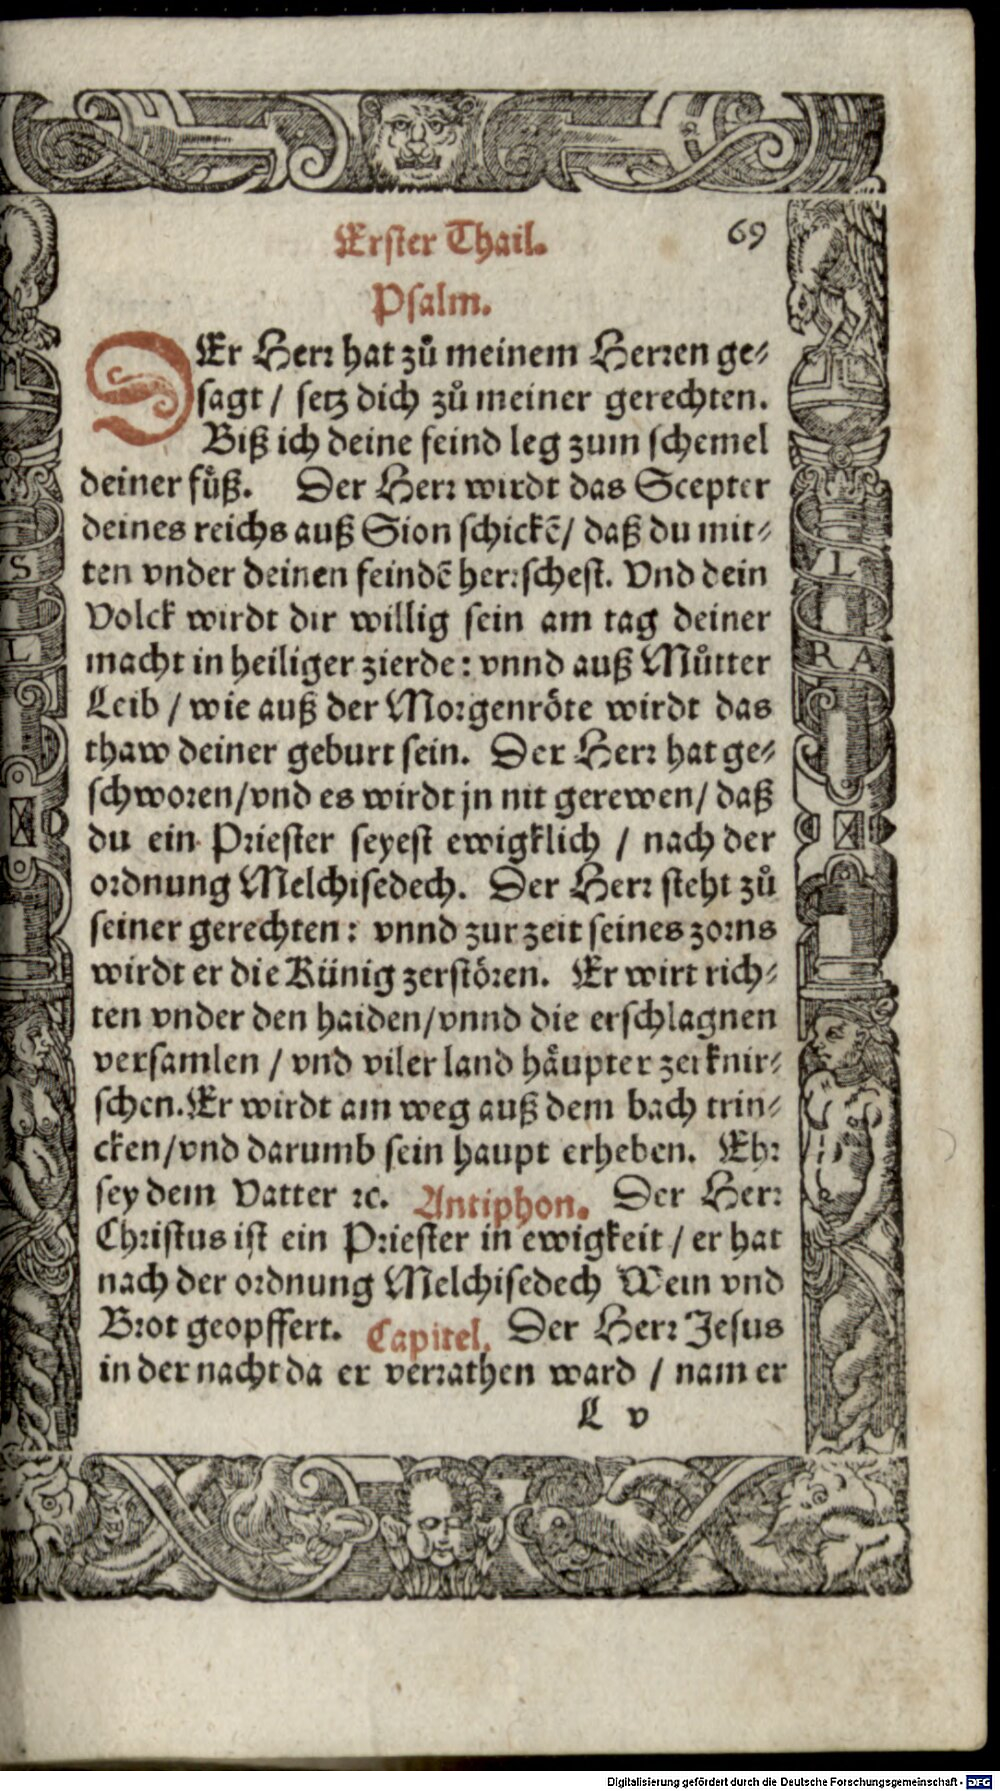 Erster Thail.
69
Psalm.
DEr Herr hat zů meinem Herren ge⸗
sagt / setz dich zů meiner gerechten.
Biß ich deine feind leg zum schemel
deiner fůß. Der Herr wirdt das Scepter
deines reichs auß Sion schickẽ/ daß du mit⸗
ten vnder deinen feindẽ herrschest. Vnd dein
Volck wirdt dir willig sein am tag deiner
macht in heiliger zierde: vnnd auß Můtter
Leib / wie auß der Morgenröte wirdt das
thaw deiner geburt sein. Der Herr hat ge⸗
schworen/vnd es wirdt jn nit gerewen/ daß
du ein Priester seyest ewigklich / nach der
ordnung Melchisedech. Der Herr steht zů
seiner gerechten: vnnd zur zeit seines zorns
wirdt er die Künig zerstören. Er wirt rich⸗
ten vnder den haiden/vnnd die erschlagnen
versamlen / vnd viler land häupter zerknir⸗
schen. Er wirdt am weg auß dem bach trin⸗
cken/vnd darumb sein haupt erheben. Ehr
sey dem Vatter ꝛc. Antiphon. Der Herr
Christus ist ein Priester in ewigkeit / er hat
nach der ordnung Melchisedech Wein vnd
Brot geopffert. Capitel. Der Herr Jesus
in der nacht da er verrathen ward / nam er
L v
S
L
VL
RA
Digitalisierung gefördert durch die Deutsche Forschungsgemeinschaft - DFG